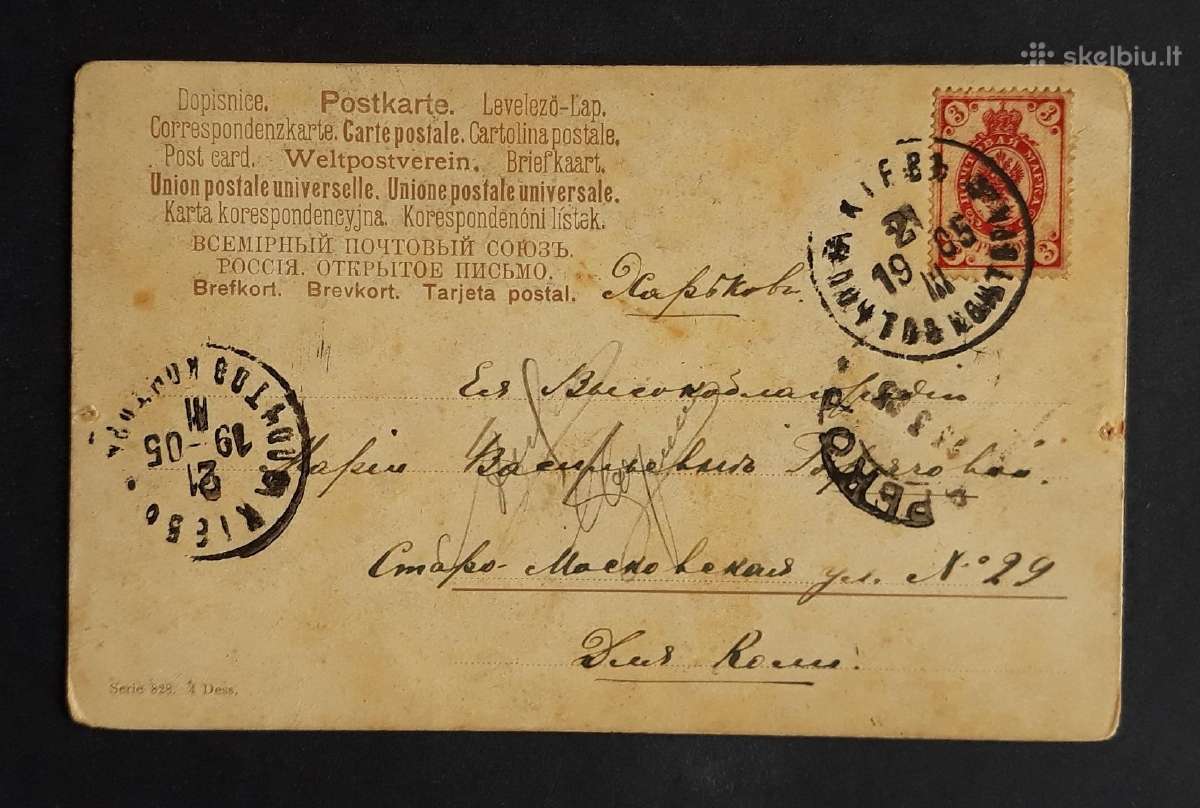 skelbiu.lt
Dopisnice. Postkarte. Levelező-Lap.
Correspondenzkarte. Carte postale. Cartolina postale.
Post card. Weltpostverein. Briefkaart.
Union postale universelle. Unione postale universale.
Karta korespondencyjna. Korespondenóni listek.
ВСЕМІРНЫЙ ПОЧТОВЫЙ СОЮЗЪ.
РОССІЯ. ОТКРЫТОЕ ПИСЬМО.
Brefkort. Brevkort. Tarjeta postal.
3 3
ПОЧТОВАЯ МАРКА
3 3
КІЕВЪ
21
19 05
III
Харьковъ
Ея Высокоблагородiю
Марiи Васильевнѣ
Старо-Московская ул. № 29
Для Коли.
ПОЧТОВ КОНТОРА
III
19-05
21
КІЕВ
Serie 828. 4 Dess.